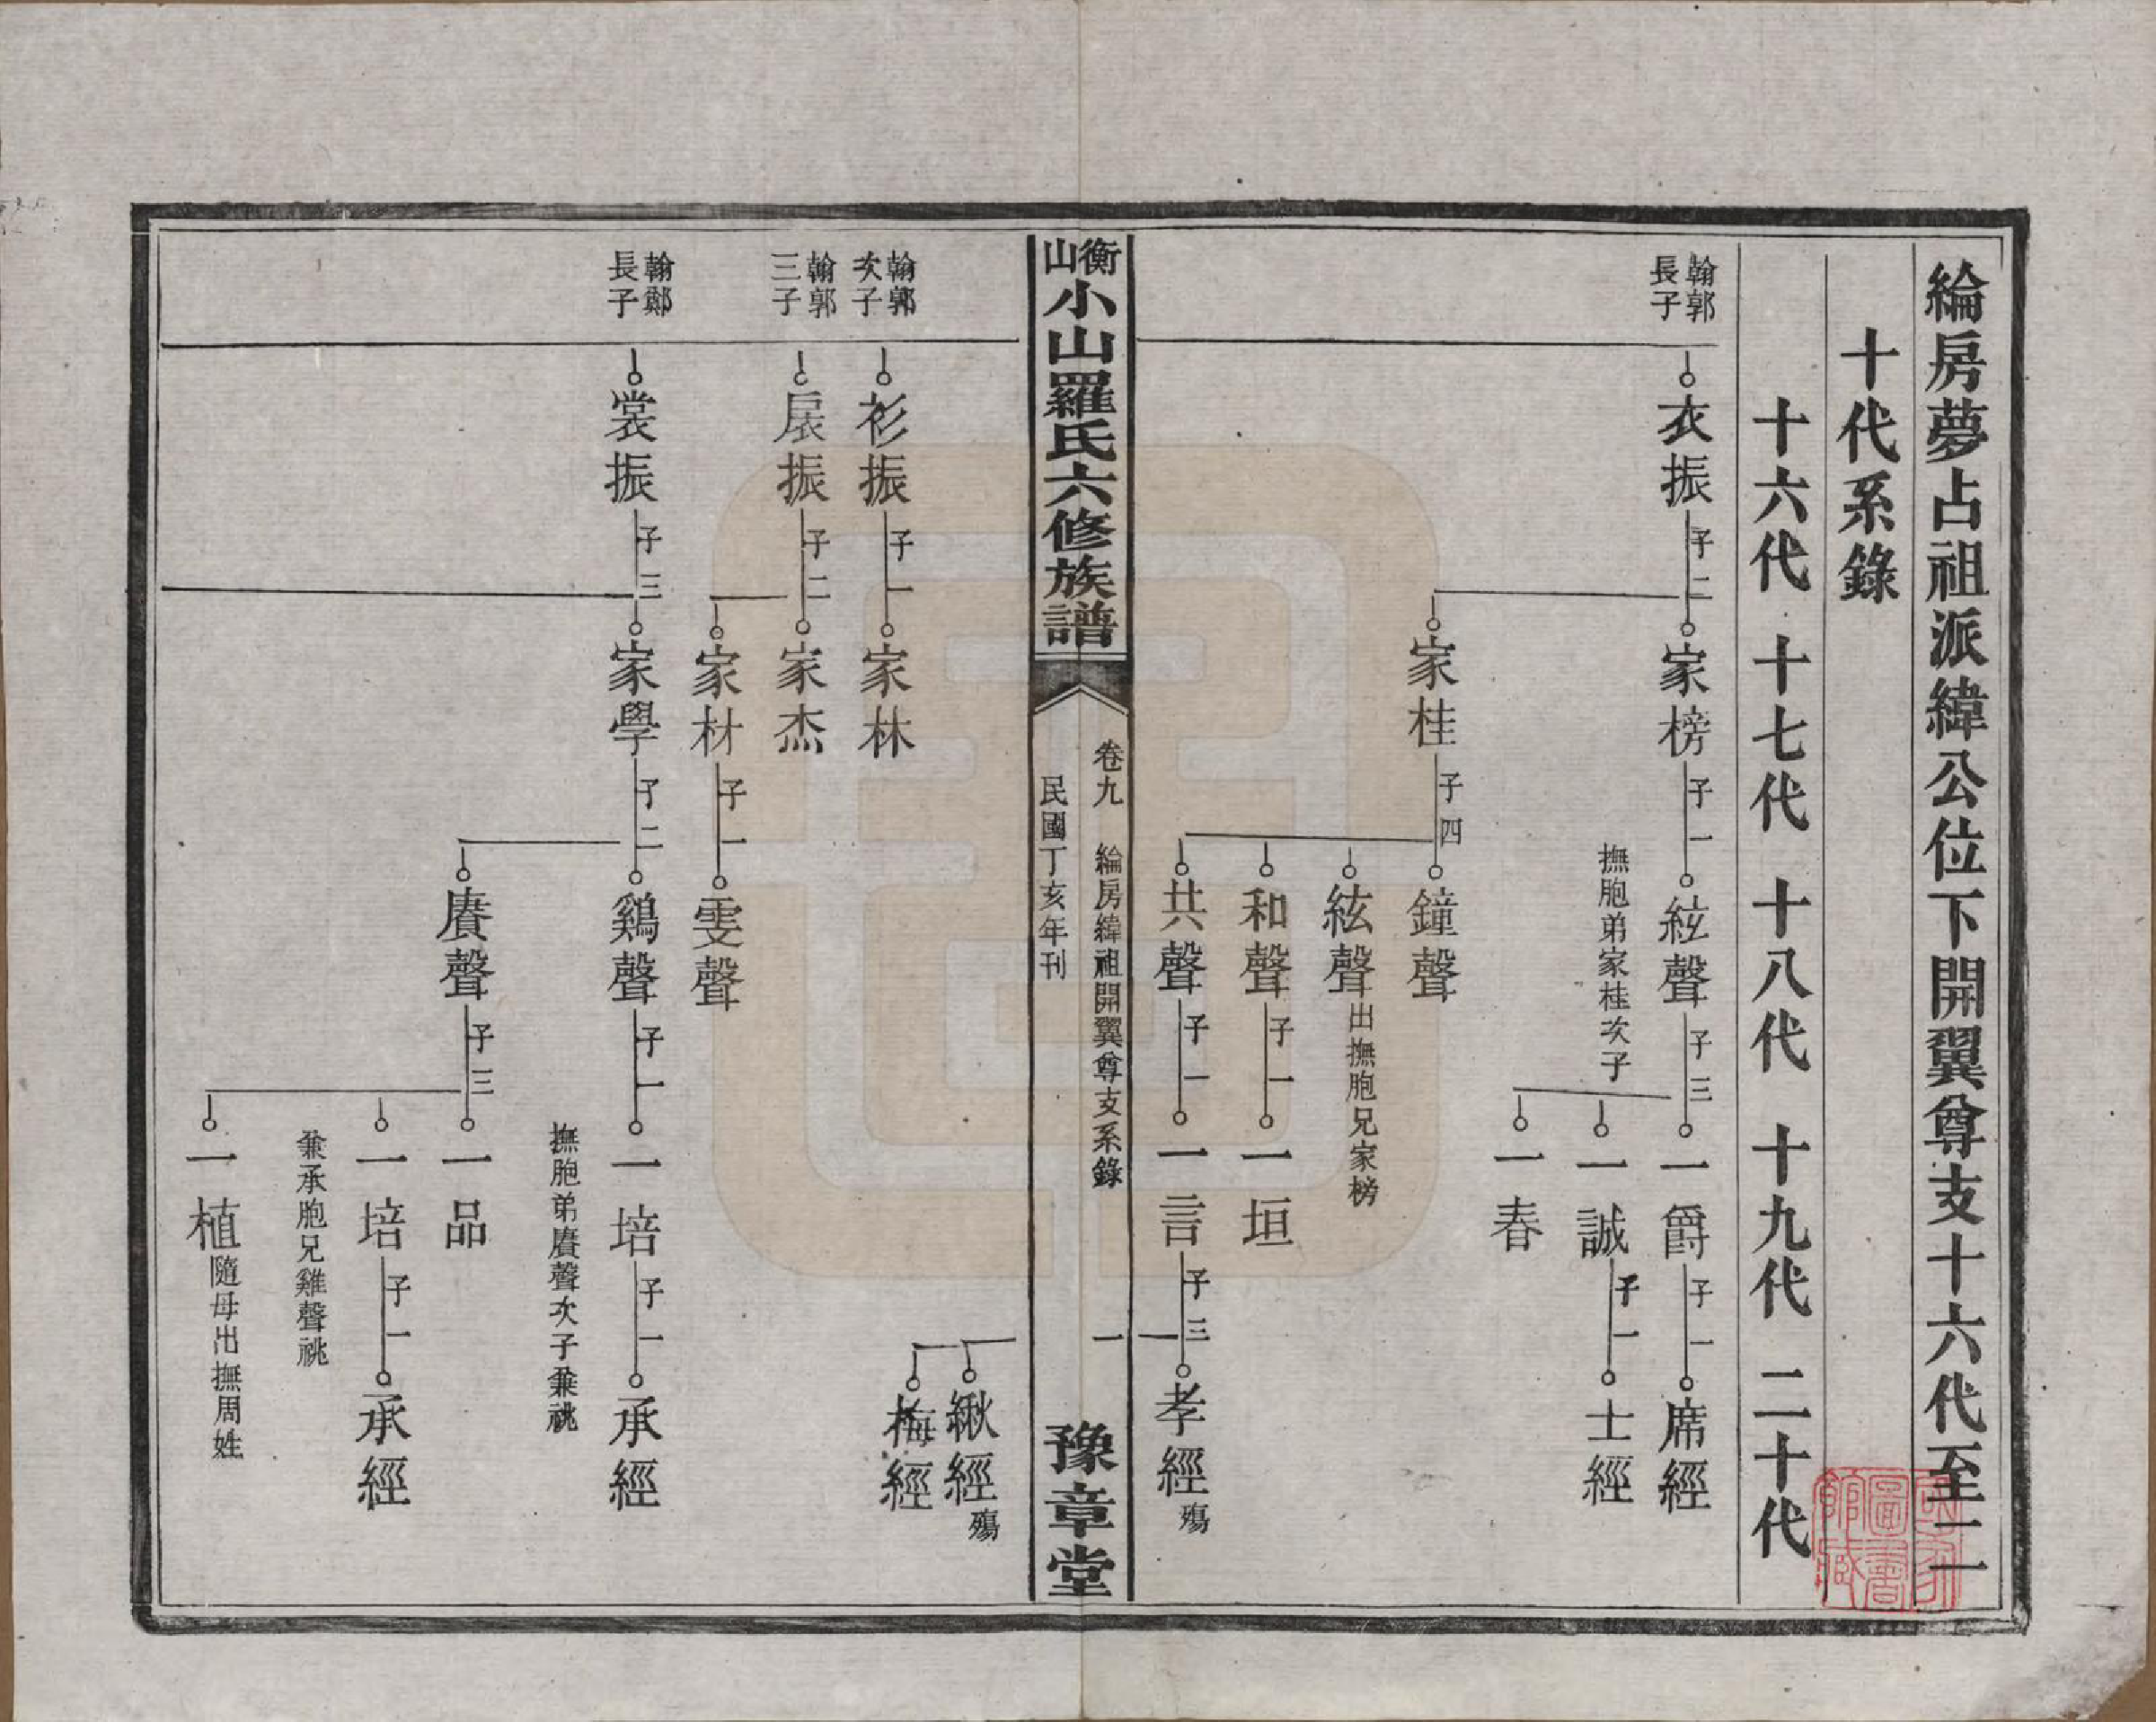 綸房夢占祖派緯公位下開翼尊支十六代至二
十代系錄
十六代 十七代 十八代 十九代 二十代
翰郭長子
衣振 子二
家榜 子一
絃聲 子三
撫胞弟家桂次子
一爵 子一
席經
一誠 子一
士經
一春
家桂 子四
鐘聲
絃聲 出撫胞兄家榜
和聲 子一
一垣
共聲 子一
一言 子三
孝經 殤
衡山小山羅氏六修族譜
卷九 綸房緯祖開翼尊支系錄 一
民國丁亥年刊
豫章堂
楸經 殤
梅經
翰郭次子
衫振 子一
家林
翰郭三子
扆振 子二
家杰
家材 子一
雯聲
翰鄭長子
裳振 子三
家學 子二
鷄聲 子一
一培 子一
承經
撫胞弟賡聲次子兼祧
賡聲 子三
一品
一培 子一
承經
兼承胞兄雞聲祧
一植 隨母出撫周姓